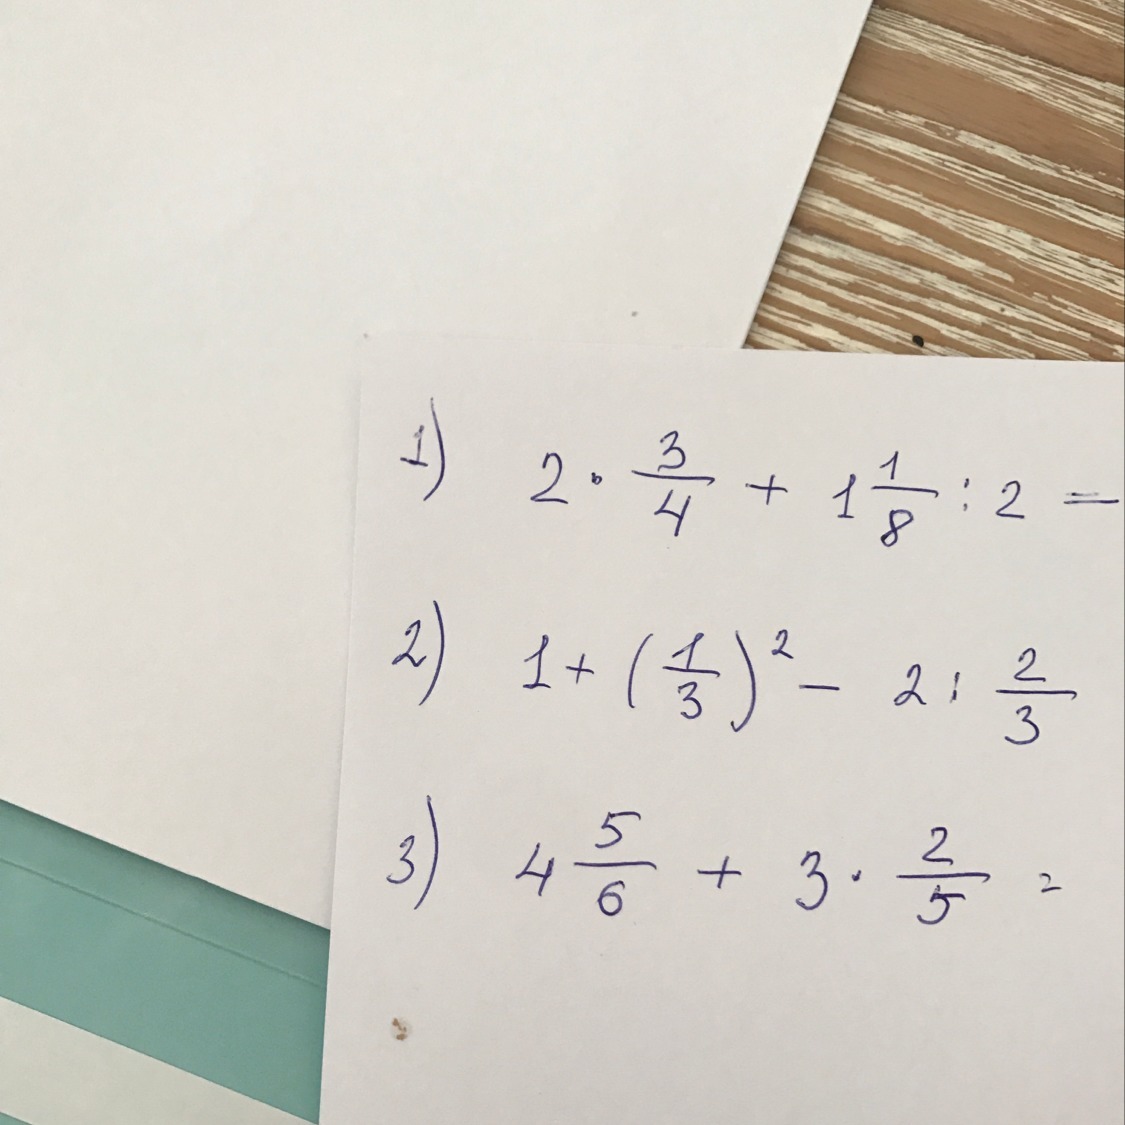 1) 2 · 3/4 + 1 1/8 : 2 =
2) 1 + (1/3)² - 2 : 2/3
3) 4 5/6 + 3 · 2/5 =